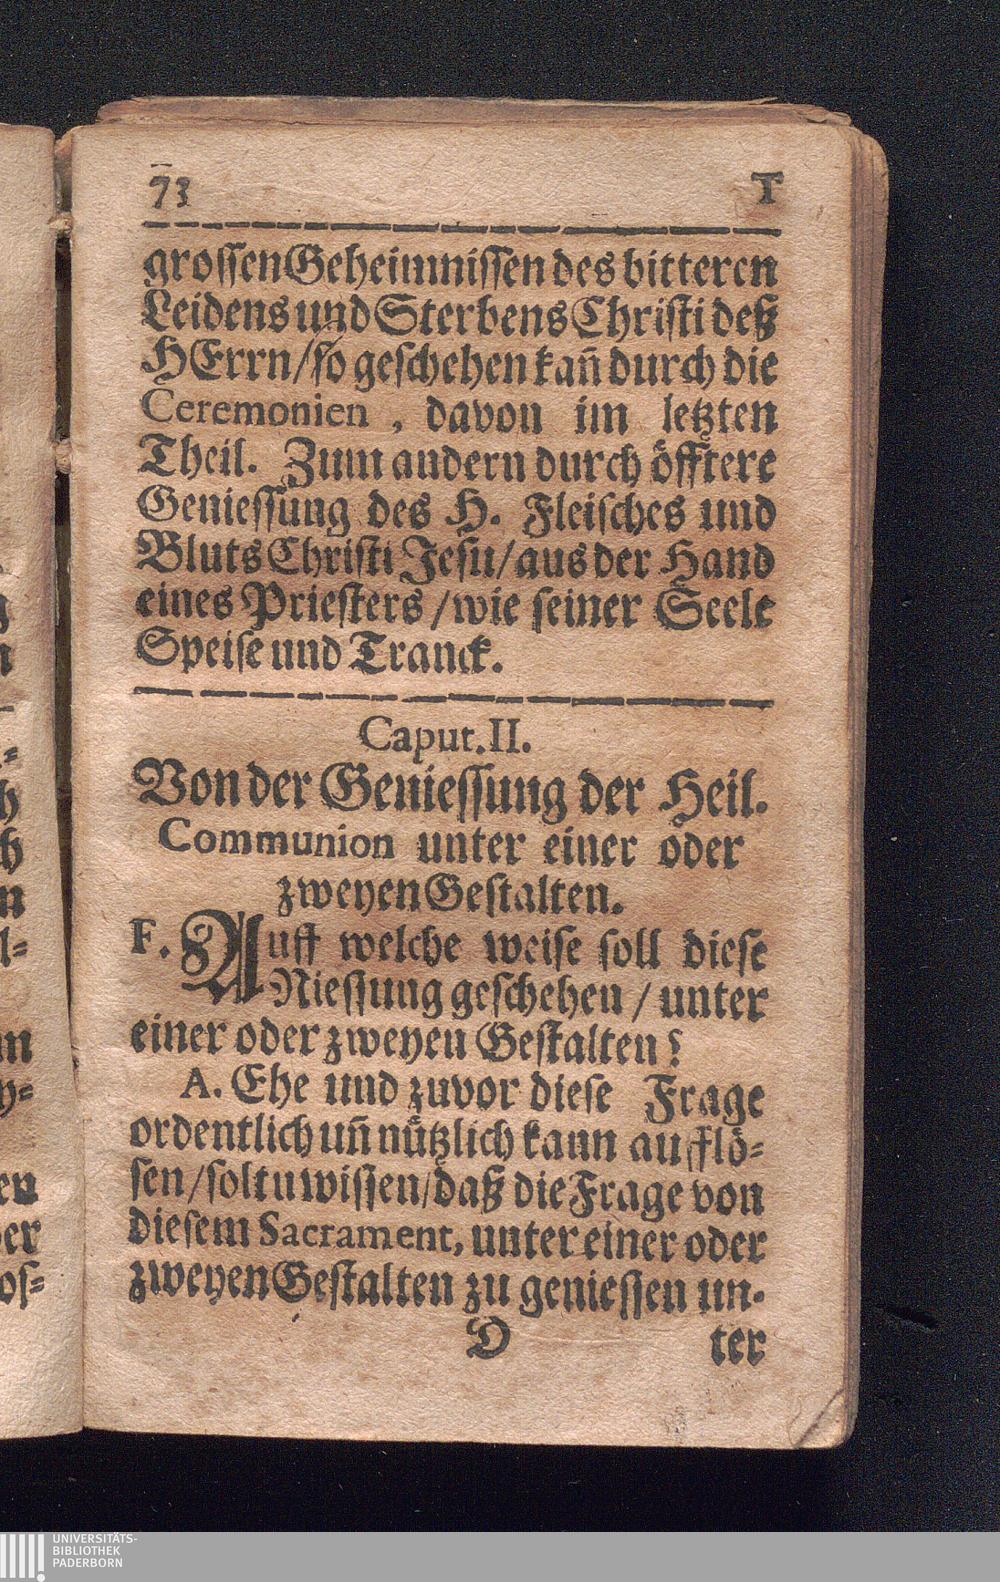 73 T
grossen Geheimnissen des bitteren
Leidens und Sterbens Christi deß
HErrn/ so geschehen kañ durch die
Ceremonien, davon im letzten
Theil. Zum andern durch öfftere
Geniessung des H. Fleisches und
Bluts Christi Jesu/ aus der Hand
eines Priesters/ wie seiner Seele
Speise und Tranck.
Caput. II.
Von der Geniessung der Heil.
Communion unter einer oder
zweyen Gestalten.
F. Auff welche weise soll diese
Niessung geschehen/ unter
einer oder zweyen Gestalten?
A. Ehe und zuvor diese Frage
ordentlich uñ nützlich kann aufflö-
sen/ soltu wissen/ daß die Frage von
diesem Sacrament, unter einer oder
zweyen Gestalten zu geniessen un-
D ter
UNIVERSITÄTS-
BIBLIOTHEK
PADERBORN